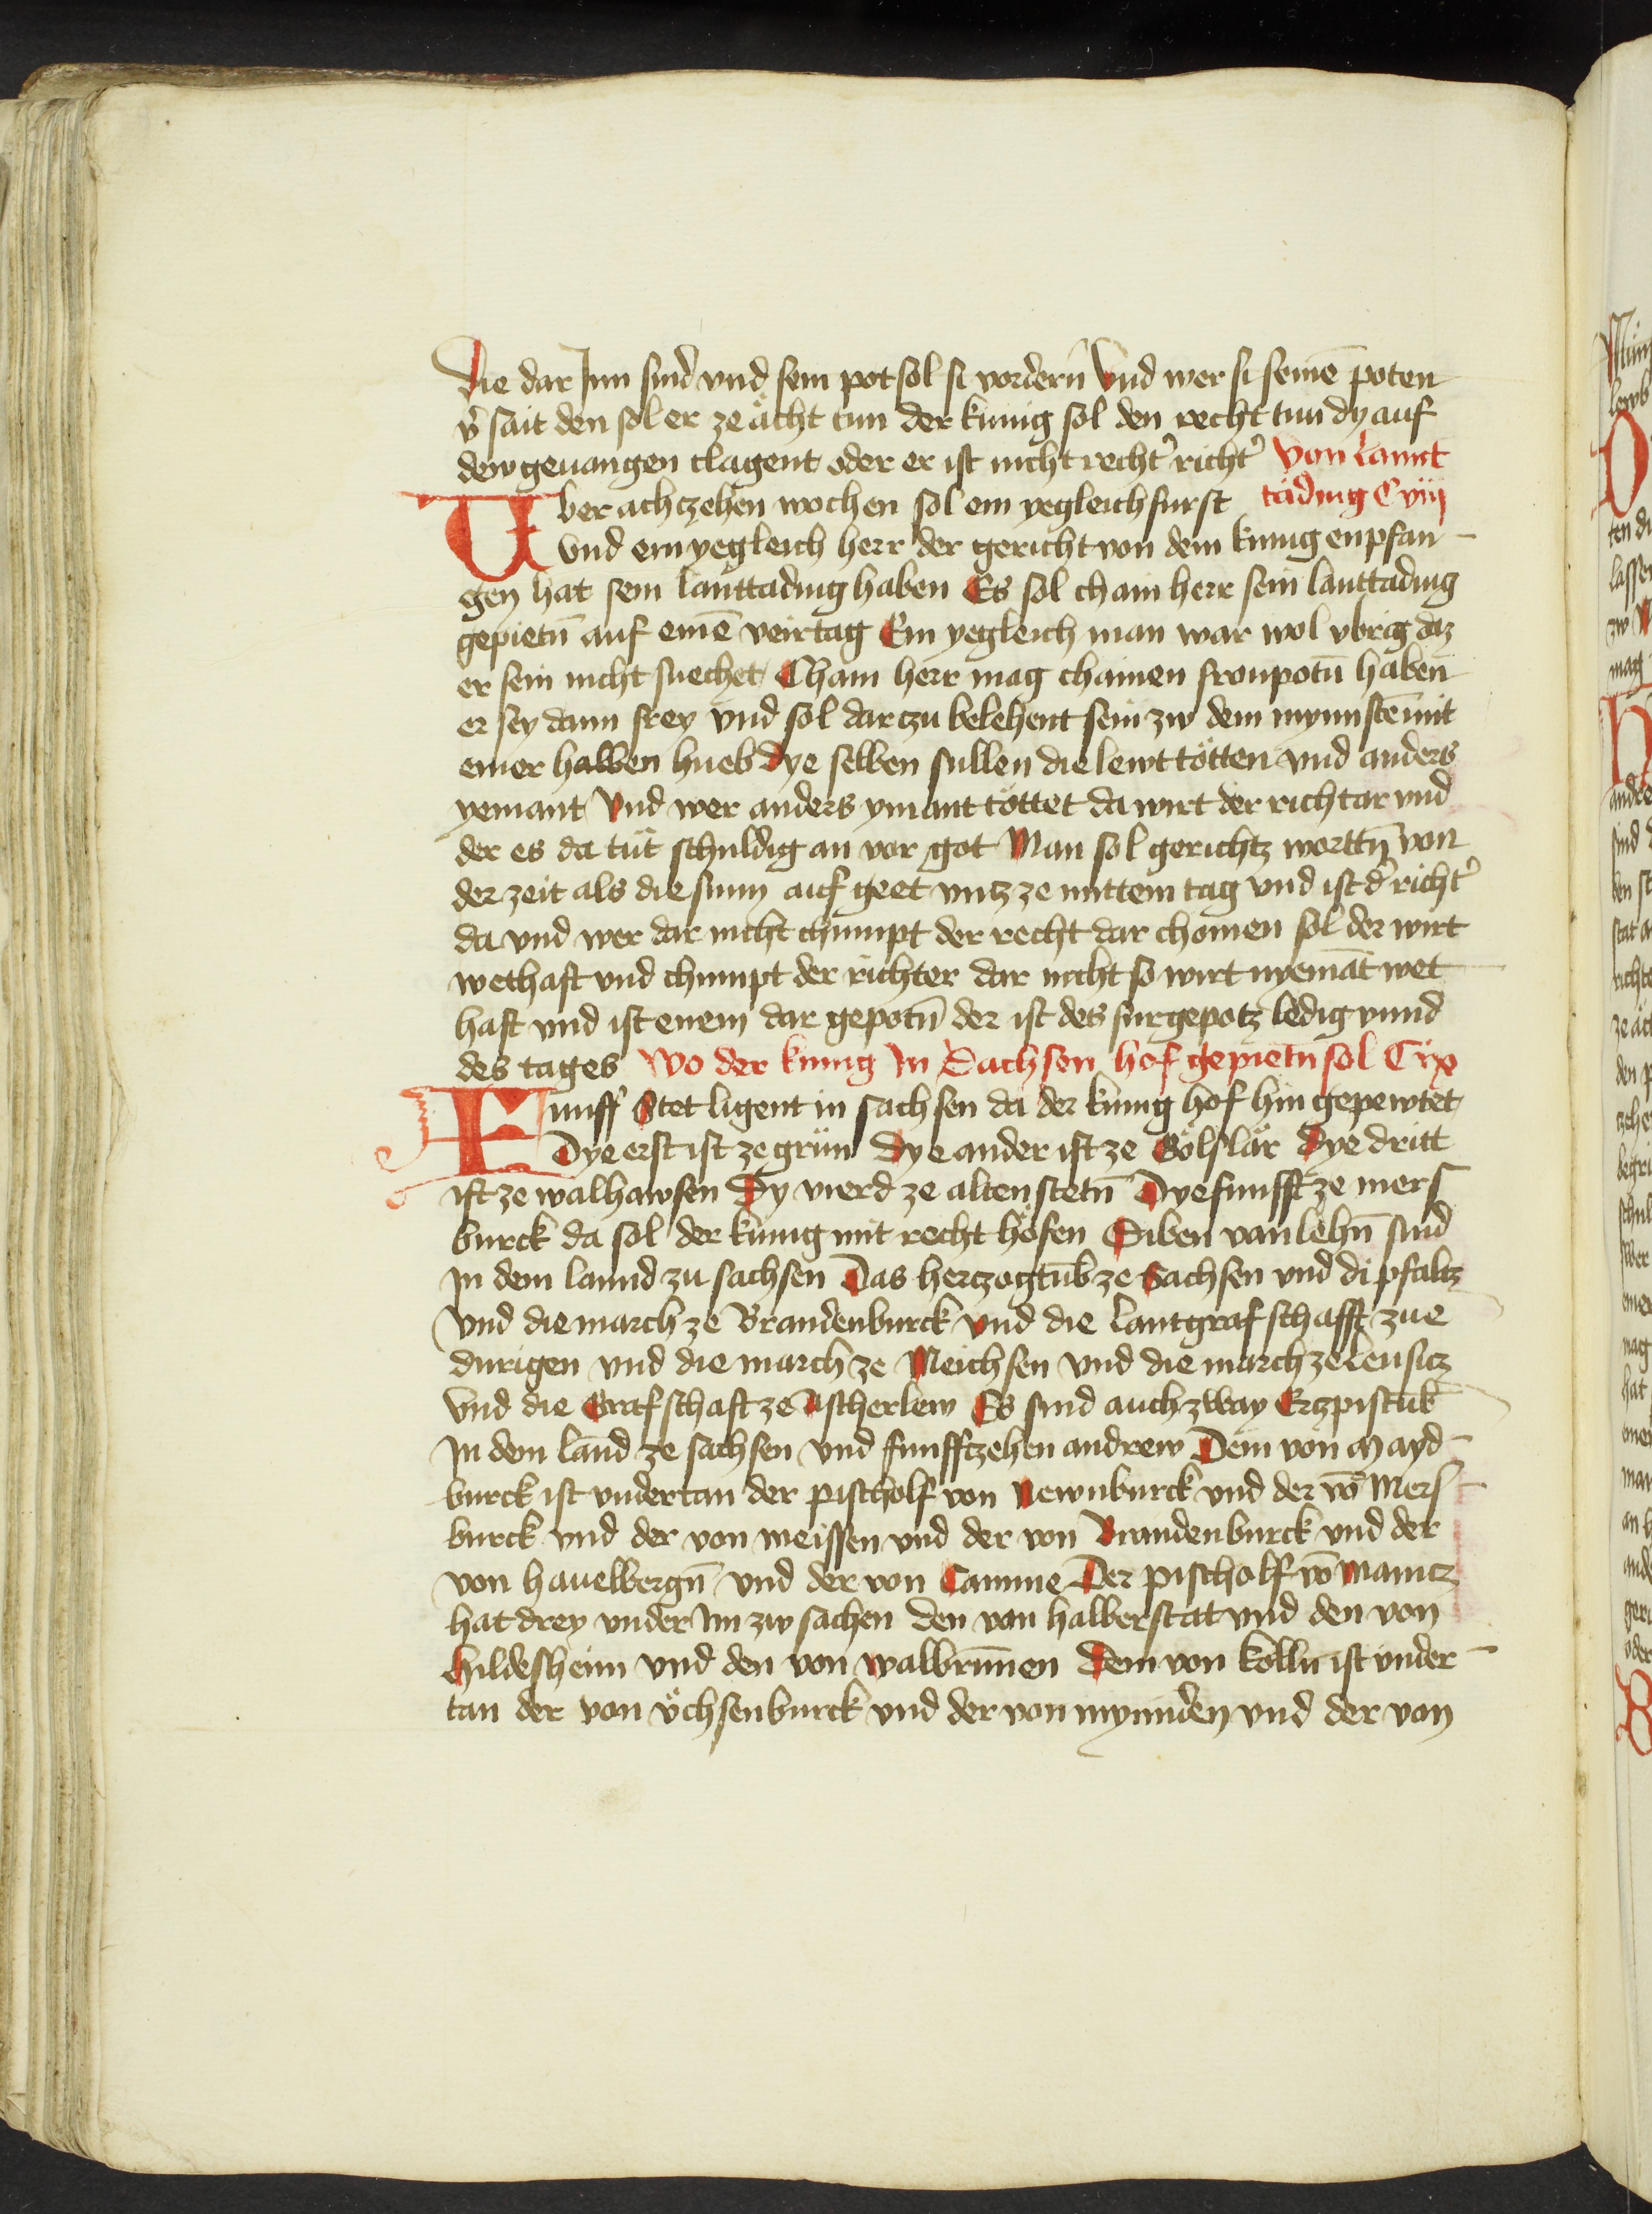 Die dar Inn sind vnd sein pot sol si vordern̄ Vnd wer si seinē poten
v̉sait den sol er ze ächt tun der kunig sol den recht tun dy auf
dew geuangen clagent oder er ist nicht recht̉ richt̉ Von lannt
Vber achtzehen wochen sol ein yegleich furst täding Cviij
vnd ein yegleich herr der gericht von dem kunig enpfan-
gen hat sein lanttading haben Es sol chain herr sein lanttading
gepietn̄ auf einē veirtag Ein yegleich man war wol vbrig daz
er sein nicht suechet Chain herr mag chainen fronpotn̄ haben
er sey dann frey vnd sol dar tzu belehent sein zw dem mynnstē mit
einer halben hueb Dye selben sullen die lewt tötten vnd anders
yemant Vnd wer anders ymant töttet da wirt der richtar vnd
der es da tut schuldig an vor got Man sol gerichtz worttn̄ von
der zeit als die sunn auf geet vntz ze mittem tag vnd ist d̉ richt̉
da vnd wer dar nicht chumpt der recht dar chomen sol der wirt
wethaft vnd chumpt der richter dar nicht so wirt nyemāt wet
haft vnd ist enem dar gepotn̄ der ist des furgepotz ledig vnnd
des tages Wo der kunig In Sachsen hof gepietn̄ sol Cix
Funff Stet ligent in sachsen da der kunig hof hin gepewtet
Dye erst ist ze grün Dye ander ist ze Gölslär Dye dritt
ist ze walhawsen Dy vierd ze altenstetn̄ Dye funfft ze mers
burck da sol der kunig mit recht höfen Siben vanlehn̄ sind
In dem lannd zu sachsen Das hertzogtub ze Sachsen vnd di pfaltz
Vnd die march ze Brandenburck Vnd die lantgrafschafft zue
durigen vnd die march ze Meichsen vnd die march ze lensitz
Vnd die Grafschaft ze Ascherlew Es sind auch zway Ertzpistub
In dem land ze sachsen vnd funfftzehen andrew Dem von Mayd-
burck ist vndertan der pischolf von Newnburck vnd der vō Mers-
burck vnd der von meissen vnd der von Brandenburck vnd der
von hauelbergn̄ vnd der von Camme Der pischolf vō Maintz
hat drey vnder Im zw sachen den von halberstat vnd den von
hildesheim vnd den von walbrunnen Dem von kolln ist vnder-
tan der von öchsenburck vnd der von mynnden vnd der von